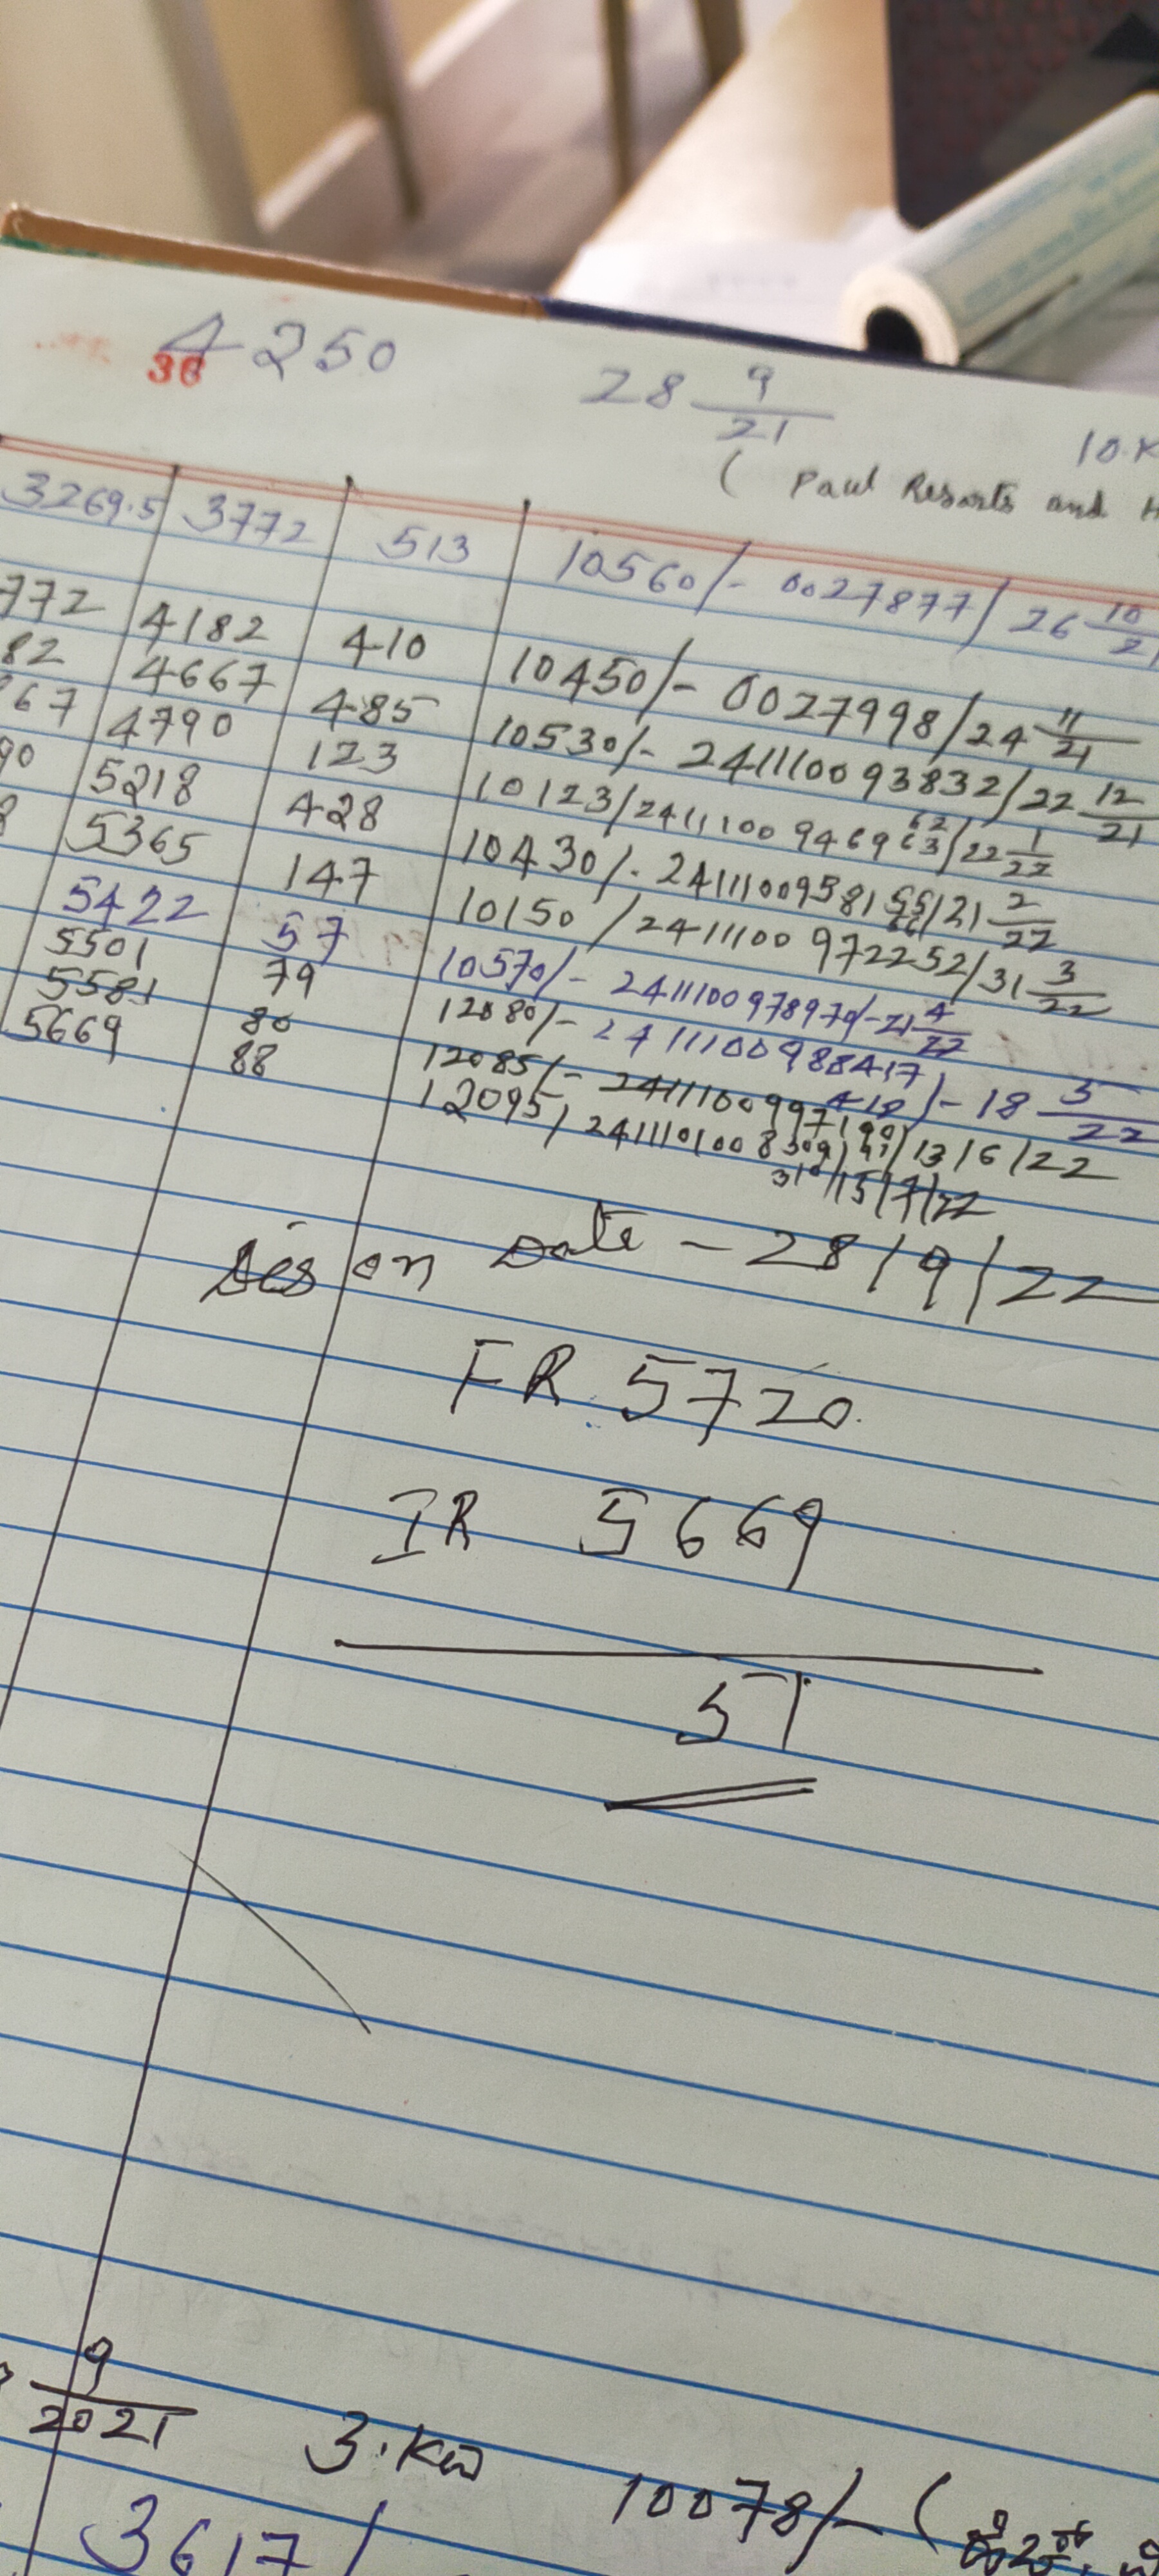 36 4250
28 9/21
10.K
( Paul Resorts and H
3269.5 3772 513 10560/- 0027877/ 26 10/21
772 4182 410 10450/- 0027998/24 11/21
82 4667 485 10530/- 241110093832/22 12/21
67 4790 123 10123/2411100 94696 62/63/22 1/22
90 5218 428 10430/- 24111009581 55/21 2/22
5365 147 10150 /2411100 972252/31 3/22
5422 57 10570/- 241110097897 21 4/22
5501 79 12080/- 24111100988417/- 18 5/22
418
5581 80 12085/- 2411100997190/91/13/6/22
5669 88 12095/ 2411101008309/
310/15/7/22
Dis on Date - 28/9/22
FR 5720.
IR 5669
51
9/2021 3.KW
3617/ 10078/- (